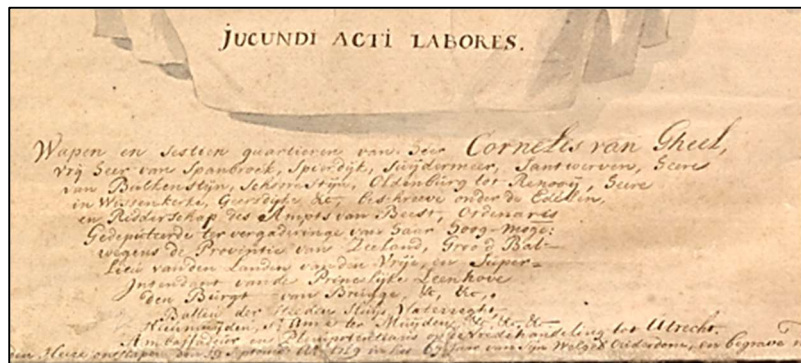 JUCUNDI ACTI LABORES.
Wapen en sestien quartieren van Heer Cornelis van Gheel,
vrij Heer van Spanbroek, Spierdijk, Suijdermeer, Santwerven, Heere
van Bulkensteijn, Schonesteijn, Oldenburg tot Renooij, Heere
in Wissenkerke, Geersdijke &c, beschreve onder de Edelen,
en Ridderschap des Ampts van Beest, Ordenaris
Gedeputeerde ter vergaderinge van Haar Hoog-Moge:
wegens de Provintie van Zeeland, Groo't Bal-
lieu vanden Landen vanden Vrije, en Super-
Intendant van de Princelijke Leenhove
den Burgt van Brugge, &c, &c,.
der Steden Sluijs,
St. Anna ter Muijden, &c, &c, &c
Ambassadeur en Plenipotentiaris op de Vredehandeling tot Utrecht.
den Heere ontslapen den in het Jare van sijn Welgeb Ouderdom, en begrave